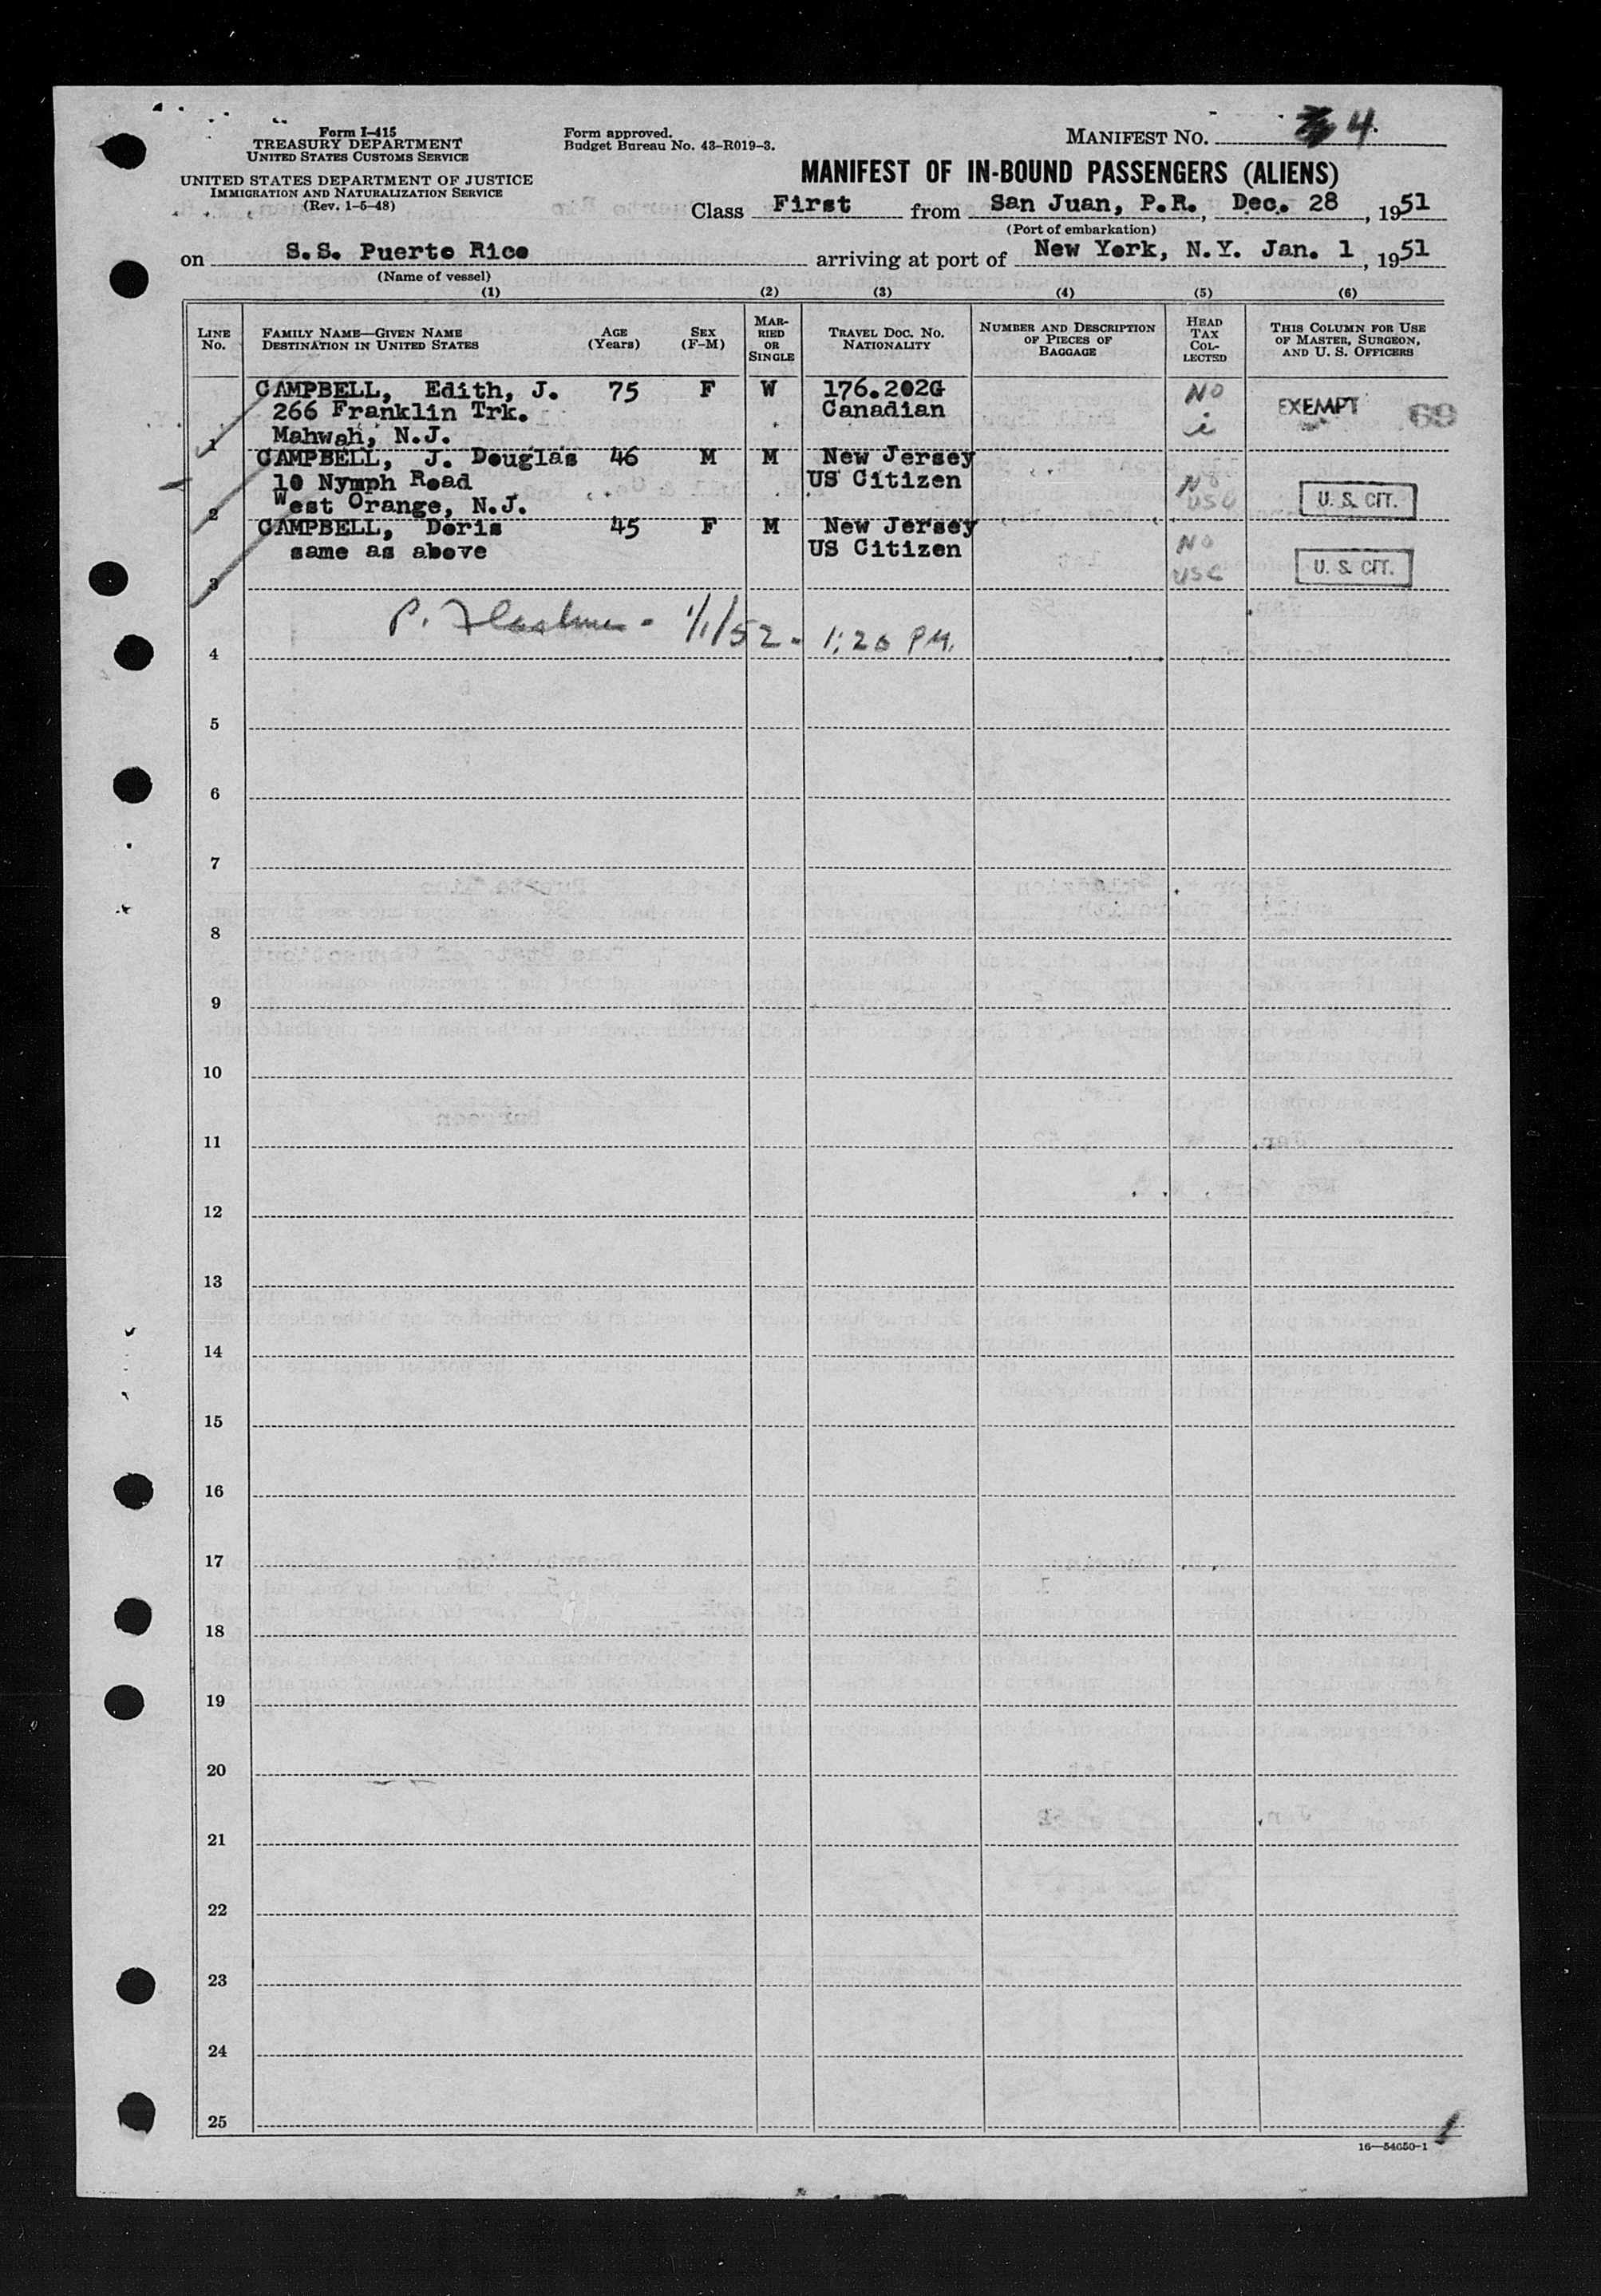 Form I-415
TREASURY DEPARTMENT
UNITED STATES CUSTOMS SERVICE
UNITED STATES DEPARTMENT OF JUSTICE
IMMIGRATION AND NATURALIZATION SERVICE
(Rev. 1-5-48)
Form approved.
Budget Bureau No. 43-R019-3.
MANIFEST NO. 4
MANIFEST OF IN-BOUND PASSENGERS (ALIENS)
Class First from San Juan, P.R., Dec. 28, 1951
(Port of embarkation)
on S.S. Puerto Rico arriving at port of New York, N.Y. Jan. 1, 1951
(Name of vessel)
(1) (2) (3) (4) (5) (6)
LINE No. FAMILY NAME—GIVEN NAME DESTINATION IN UNITED STATES AGE (Years) SEX (F-M) MARRIED OR SINGLE TRAVEL DOC. NO. NATIONALITY NUMBER AND DESCRIPTION OF PIECES OF BAGGAGE HEAD TAX COLLECTED THIS COLUMN FOR USE OF MASTER, SURGEON, AND U. S. OFFICERS
CAMPBELL, Edith, J. 75 F W 176.202G NO
266 Franklin Trk. Canadian i EXEMPT 69
1 Mahwah, N.J.
CAMPBELL, J. Douglas 46 M M New Jersey
10 Nymph Road US Citizen NO
2 West Orange, N.J. USC U. S. CIT.
CAMPBELL, Doris 45 F M New Jersey NO
same as above US Citizen USC U. S. CIT.
3
P. 1/1/52 - 1:20 PM.
4
5
6
7
8
9
10
11
12
13
14
15
16
17
18
19
20
21
22
23
24
25
16—54650-1
1